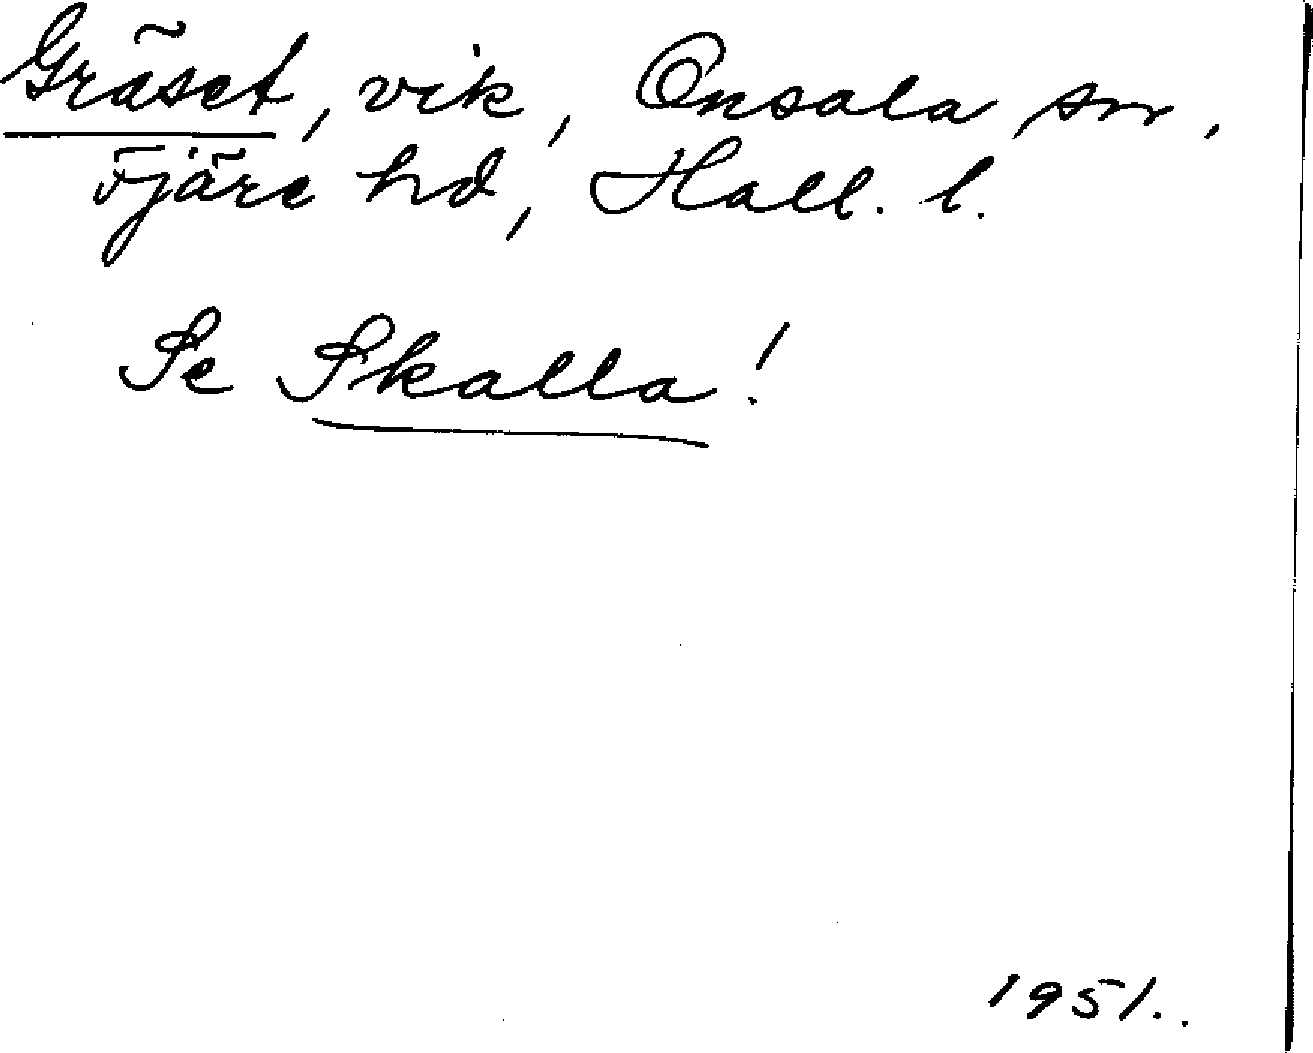 Gräset, vik, Onsala sn,
Fjäre hd, Hall. l.
Se Skalla!
1951..